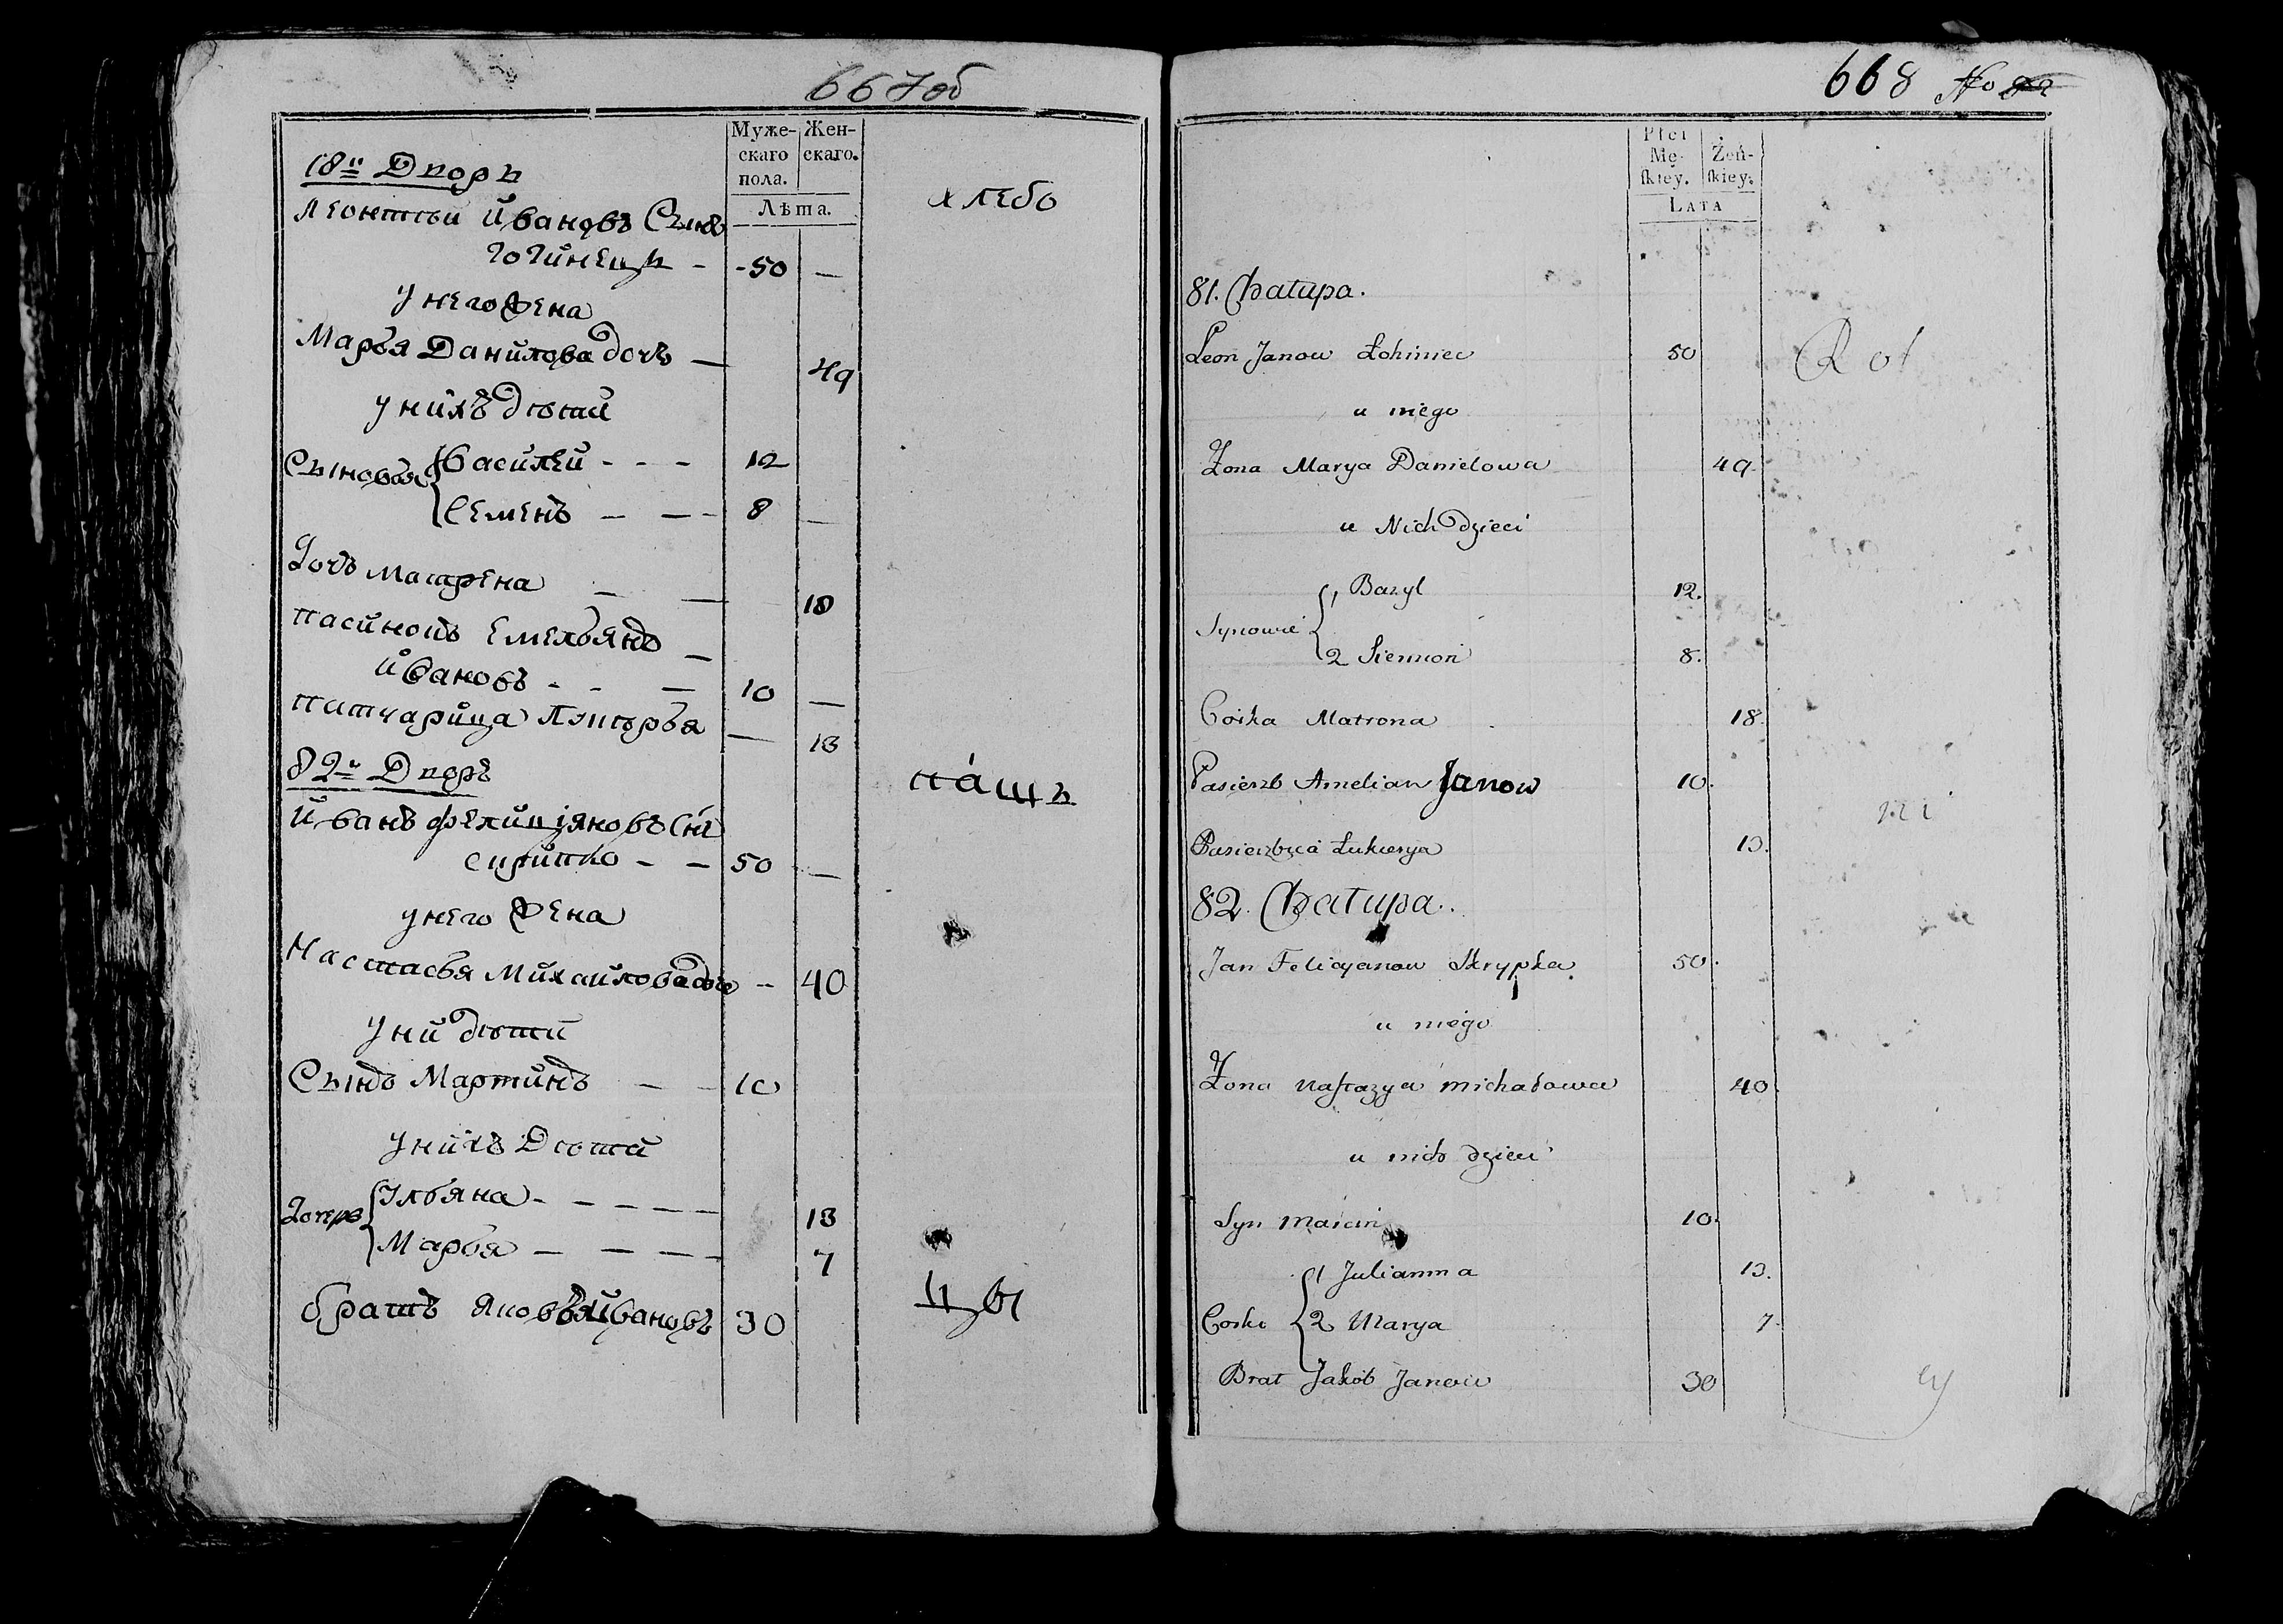 667об
Муже-
скаго
пола.
Жен-
скаго.
Лѣта.
18й Дворъ
хлебо
Леонтеи Ивановъ Сынъ
Логинецъ - -50 —
у него жена
Марья Данилова дочь — 49
у нихъ дѣти
Сыновья { Василей - - - 12
Семенъ — — - 8 —
Дочь Матрена — — 18
пасинокъ Емельянъ —
Ивановъ - - — 10 —
патчарица Лукерья — 13
82й Дворъ
пашъ
Иванъ Фелиціановъ Снъ
Скрипко - — 50 —
у него жена
Настасья Михаилова дочь -- 40
у ни дѣти
Сынъ Мартинъ — - 10
у нихъ Дѣти
Дочерь { Ульяна - — — — — 13
Марья — — — — 7
братъ Яковъ Ивановъ 30
цы
668 No 82
Płci
Mę-
ſkiey.
Żeń-
ſkiey.
LATA
81. Chatupa.
Leon Janow Łohiniec 50
Rol
u niego
Żona Marya Danielowa 49
u Nich dzieci
Synowie { 1 Bazyl 12.
2 Siemion 8.
Corka Matrona 18.
Pasierzb Amelian Janow 10.
ni
Pasierzbica Łukierya 13.
82. Chatupa.
Jan Felicyanow Skrypka 50.
u niego
Żona Naſtazya Michałowa 40.
u nich dzieci
Syn Marcin 10.
Corki { 1 Julianna 13.
2 Marya 7.
Brat Jakób Janow 30
cy